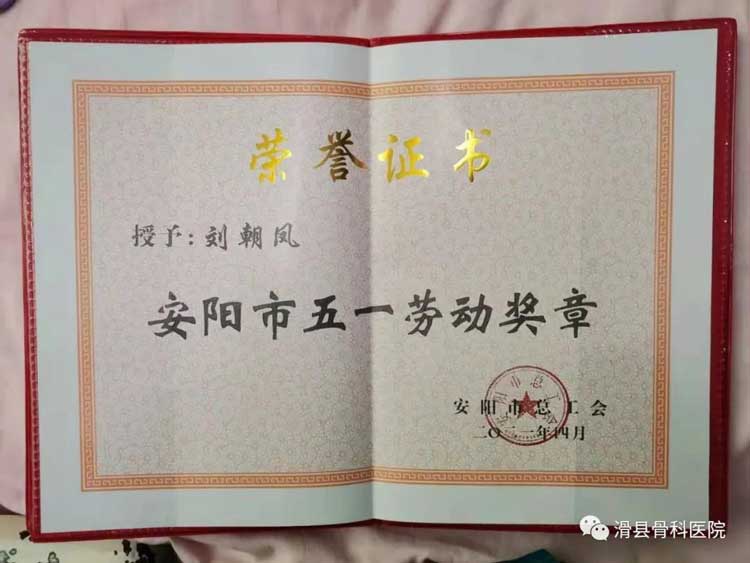 荣誉证书
授予：刘朝凤
安阳市五一劳动奖章
安阳市总工会
安阳市总工会
二〇二一年四月
滑县骨科医院